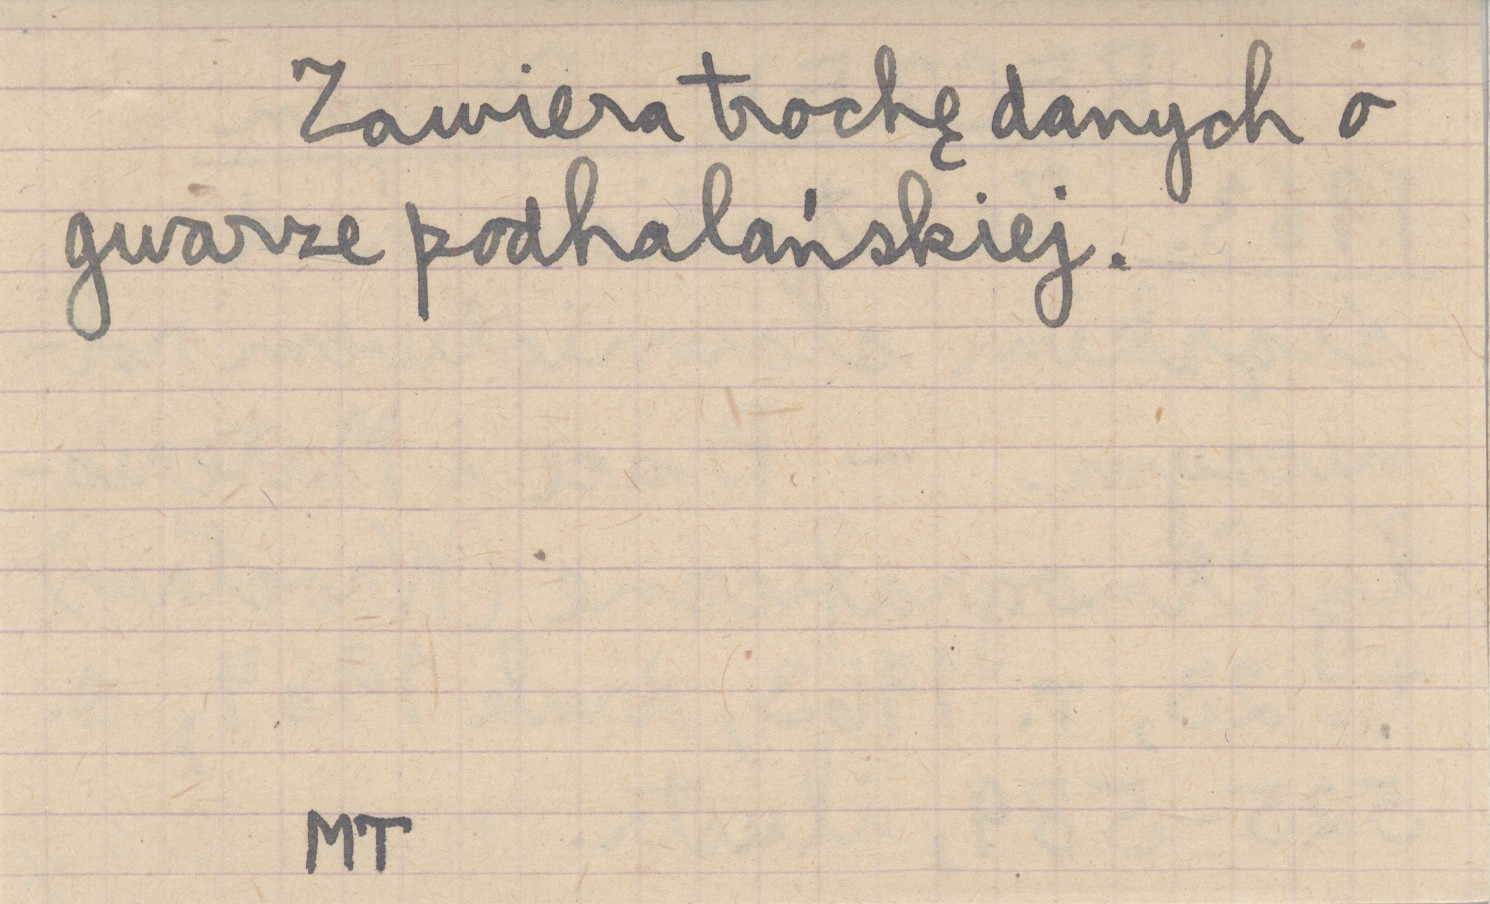 Zawiera trochę danych o
gwarze podhalańskiej.
MT